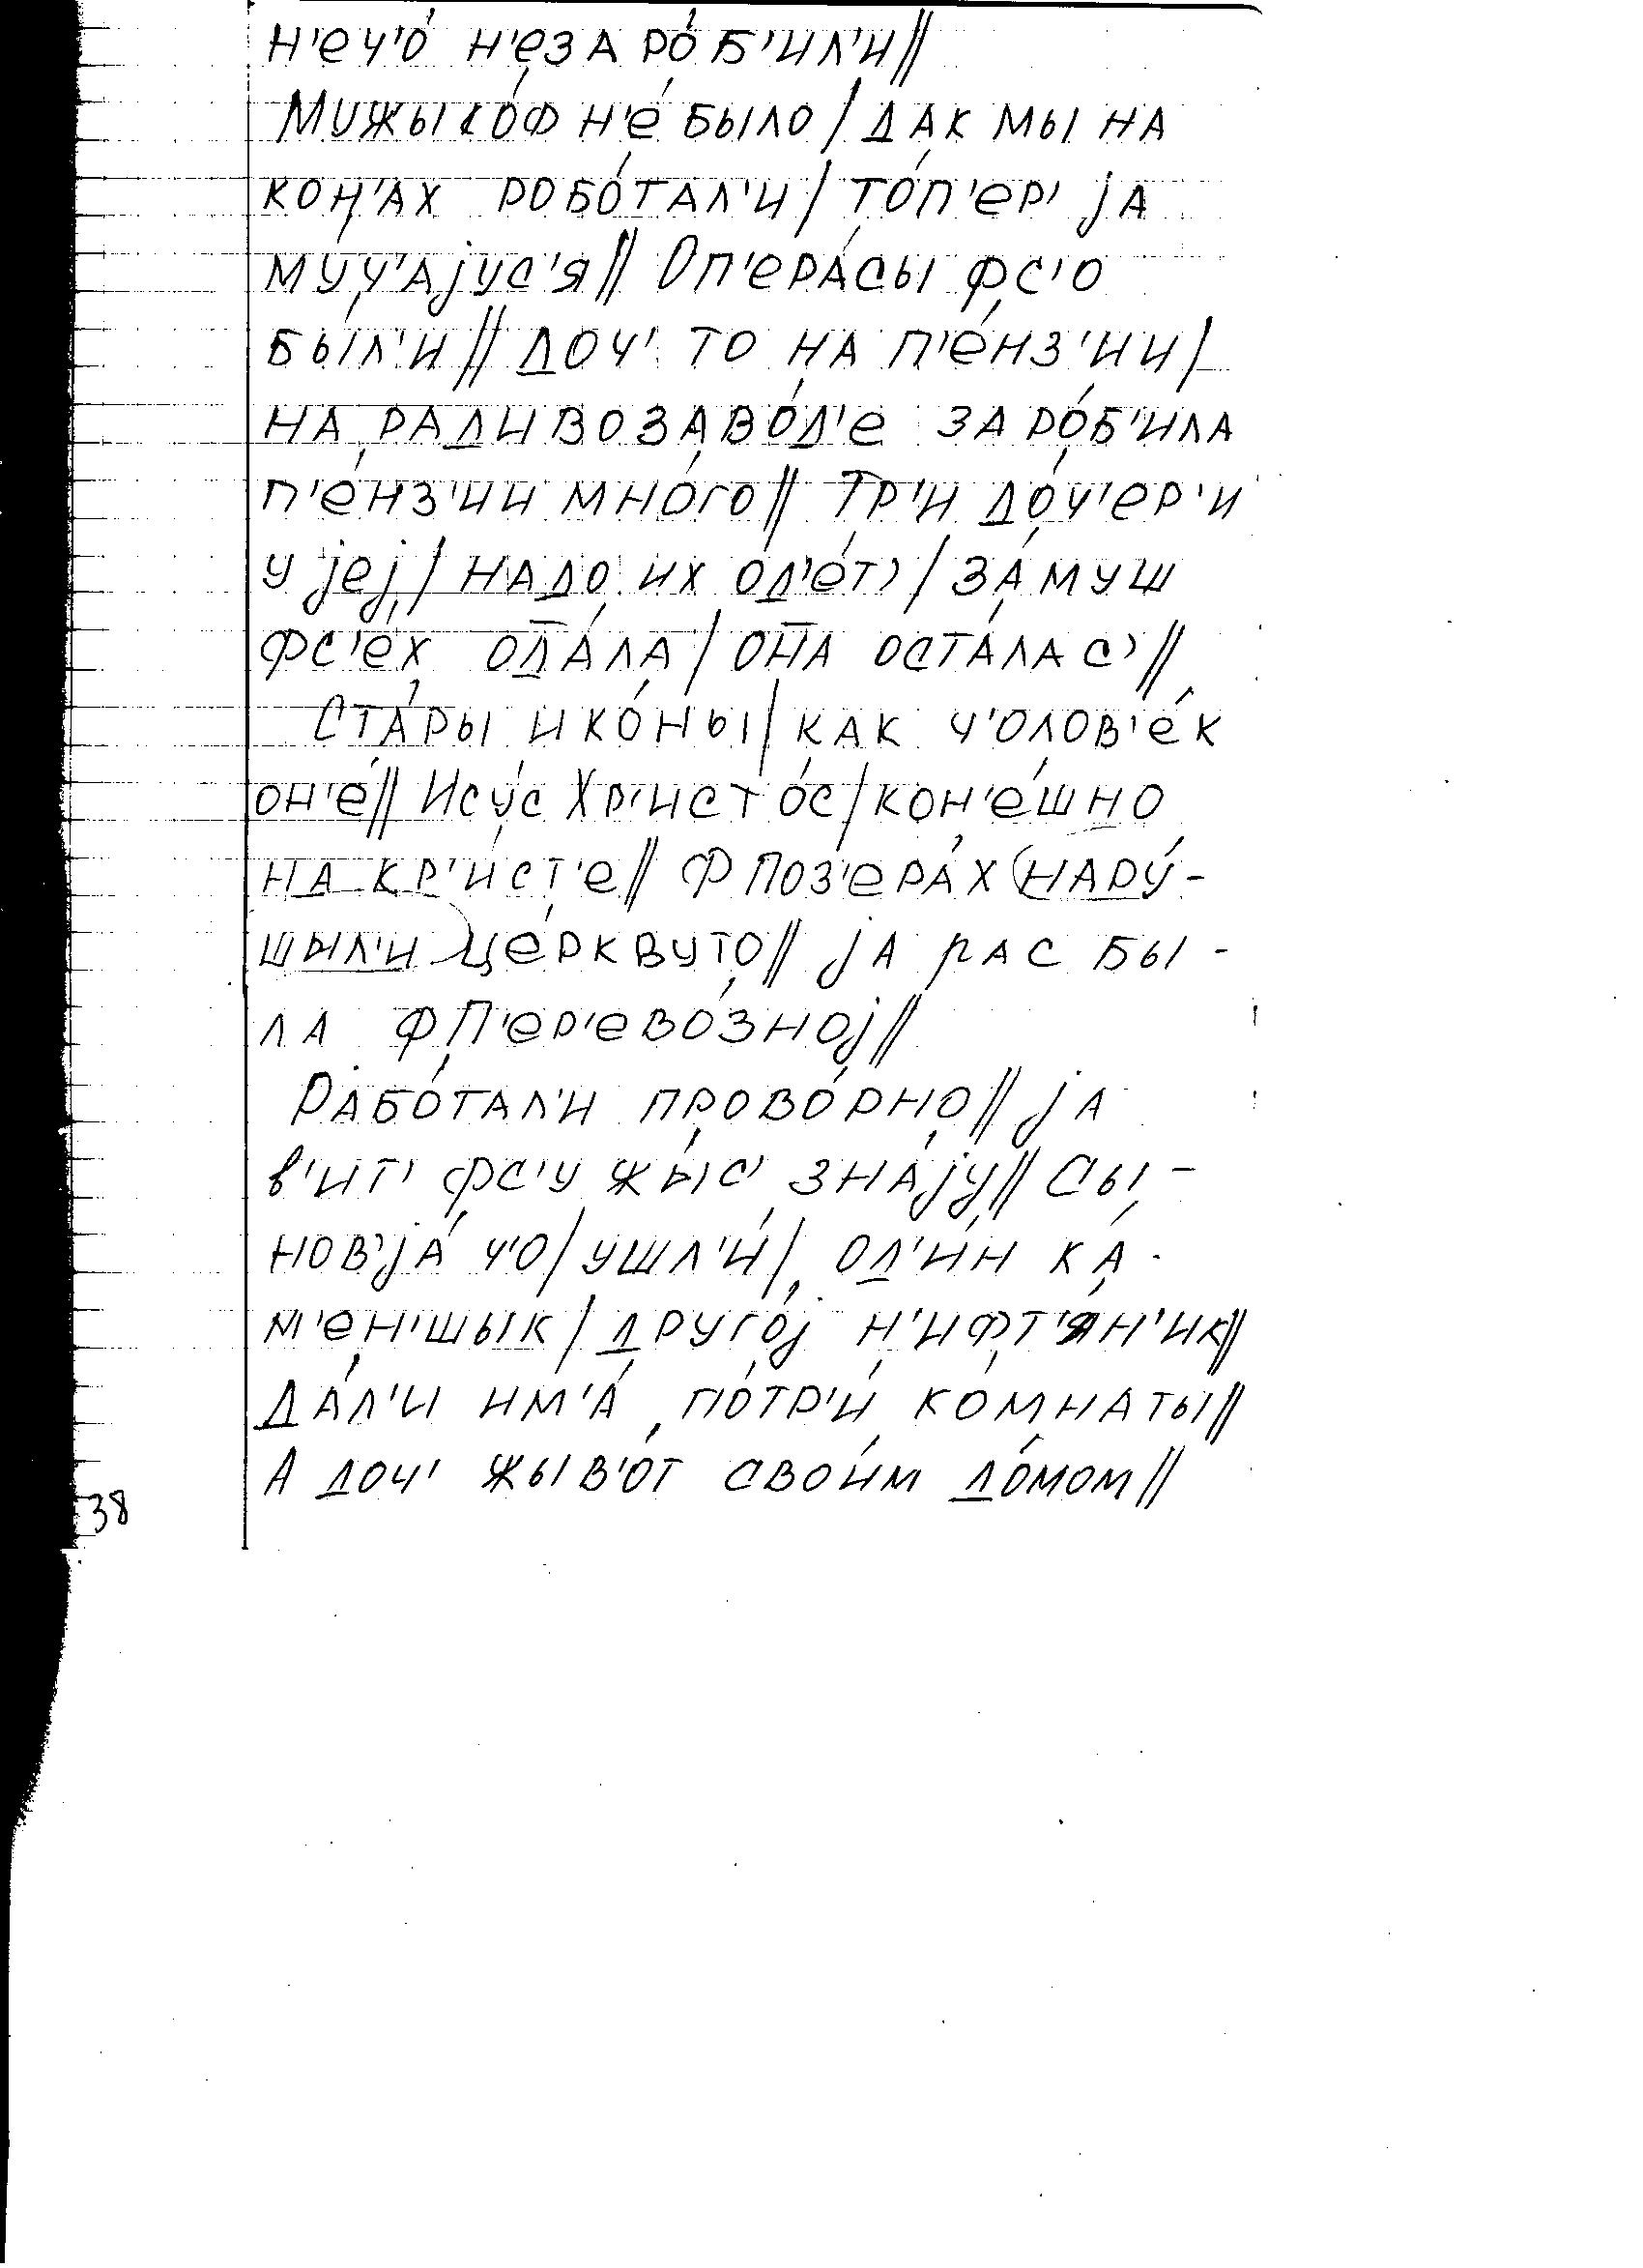 н'еч'о́ н'еза ро́б'ил'и//
Мужыко́ф н'е́ было/дак мы на
кон'ах робо́тал'и/то́п'ер' jа
му́ч'аjус'я// Оп'ера́сы фс'о
бы́л'и// доч' то на п'е́нз'ии/
на радивозаво́д'е заро́б'ила
п'е́нз'ии мно́го// Тр'и до́ч'ер'и
у jеj/надо их од'е́т'/за́муш
фс'е́х ода́ла/она оста́лас'//
Ста́ры ико́ны/как ч'олов'е́к
он'е́// Ису́с Хр'исто́с/кон'е́шно
на кр'ист'е// Ф поз'ера́х нару́-
шыл'и це́рквуто// jа рас бы-
ла ф П'ер'ево́зноj//
Рабо́тал'и прово́рно// jа
в'ит' фс'у жы́с' зна́jу// Сы-
нов'jа́ ч'о/ушл'и́/од'и́н ка́-
м'ен'шык/друго́j н'ифт'я́н'ик//
Да́л'и им'а́ по́тр'и́ ко́мнаты//
А доч' жыв'о́т свои́м до́мом//
38